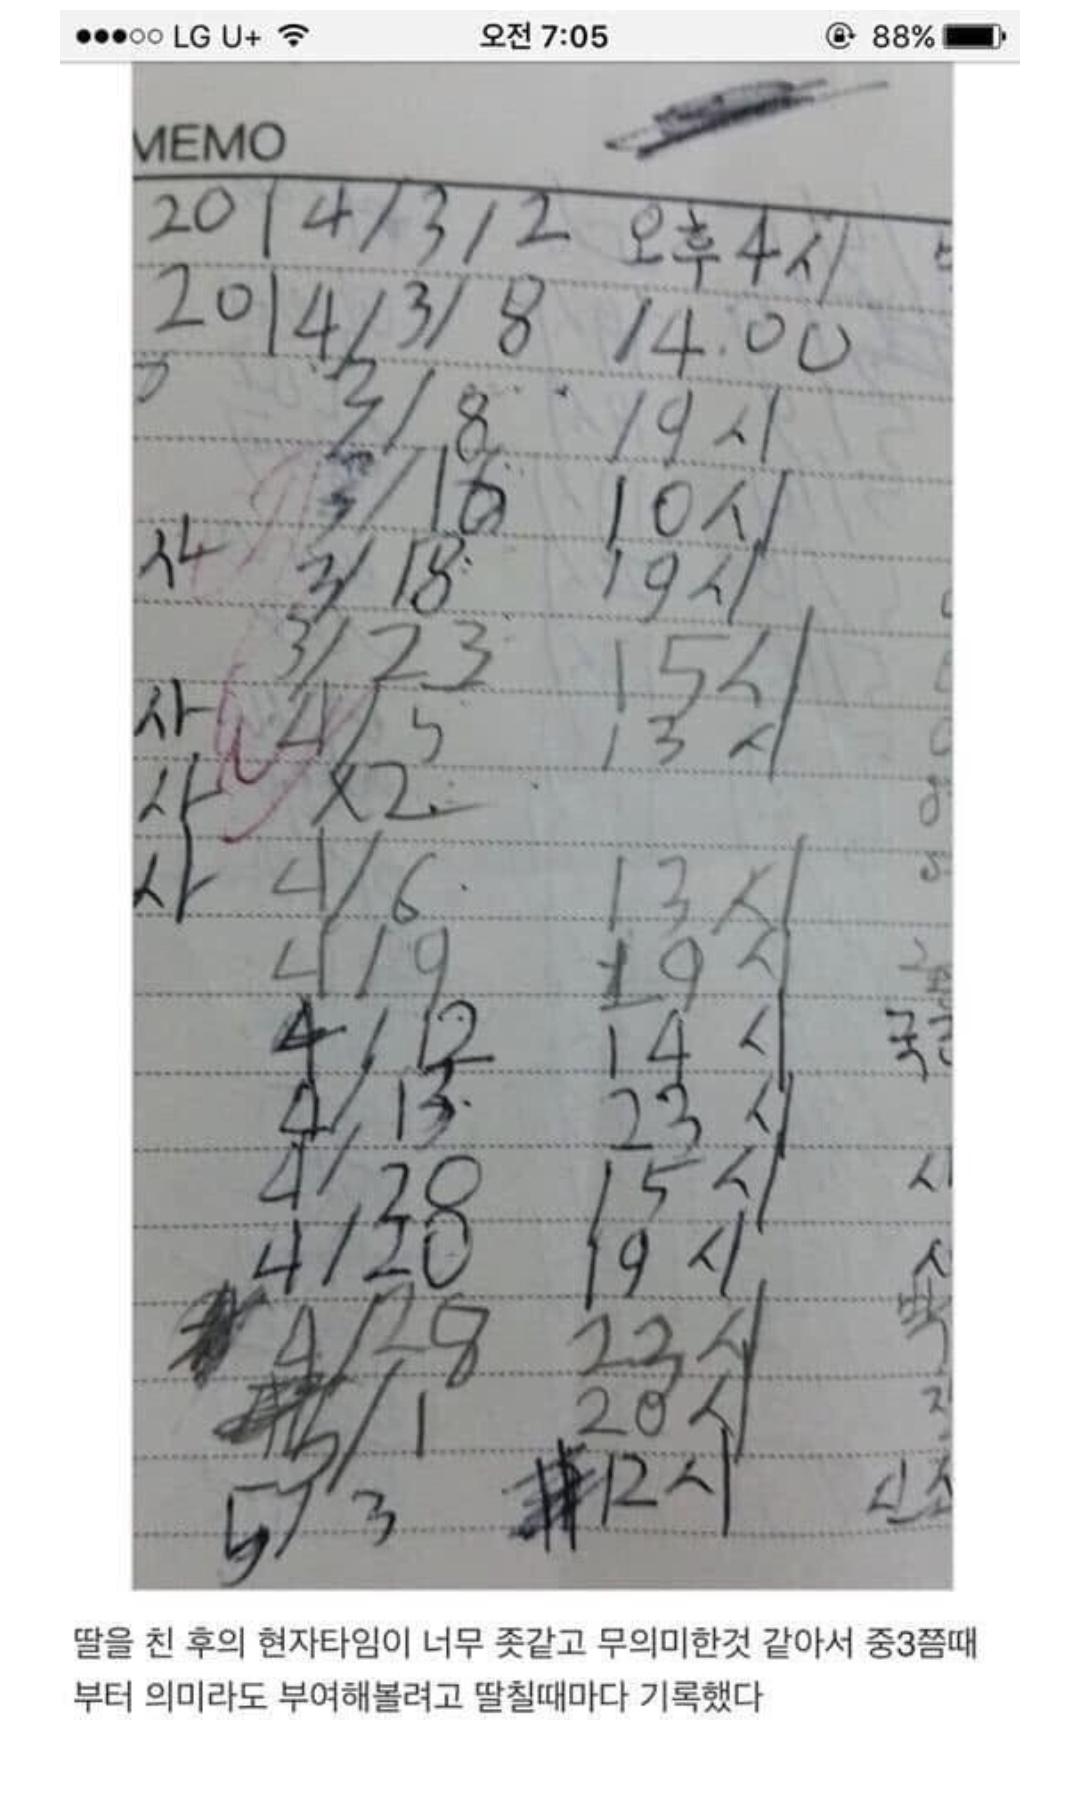 LG U+ 오전 7:05 88%
MEMO
2014/3/2 오후 4시
2014/3/8 14.00
3/8 19시
3/16 10시
사 3/18 19시
3/23 15시
사 4/5 13시
사 x2
사 4/6 13시
4/9 19시
4/12 14시
4/13 23시
4/20 15시
4/20 19시
4/28 22시
5/1 20시
5/3 12시
딸을 친 후의 현자타임이 너무 좃같고 무의미한것 같아서 중3쯤때
부터 의미라도 부여해볼려고 딸칠때마다 기록했다